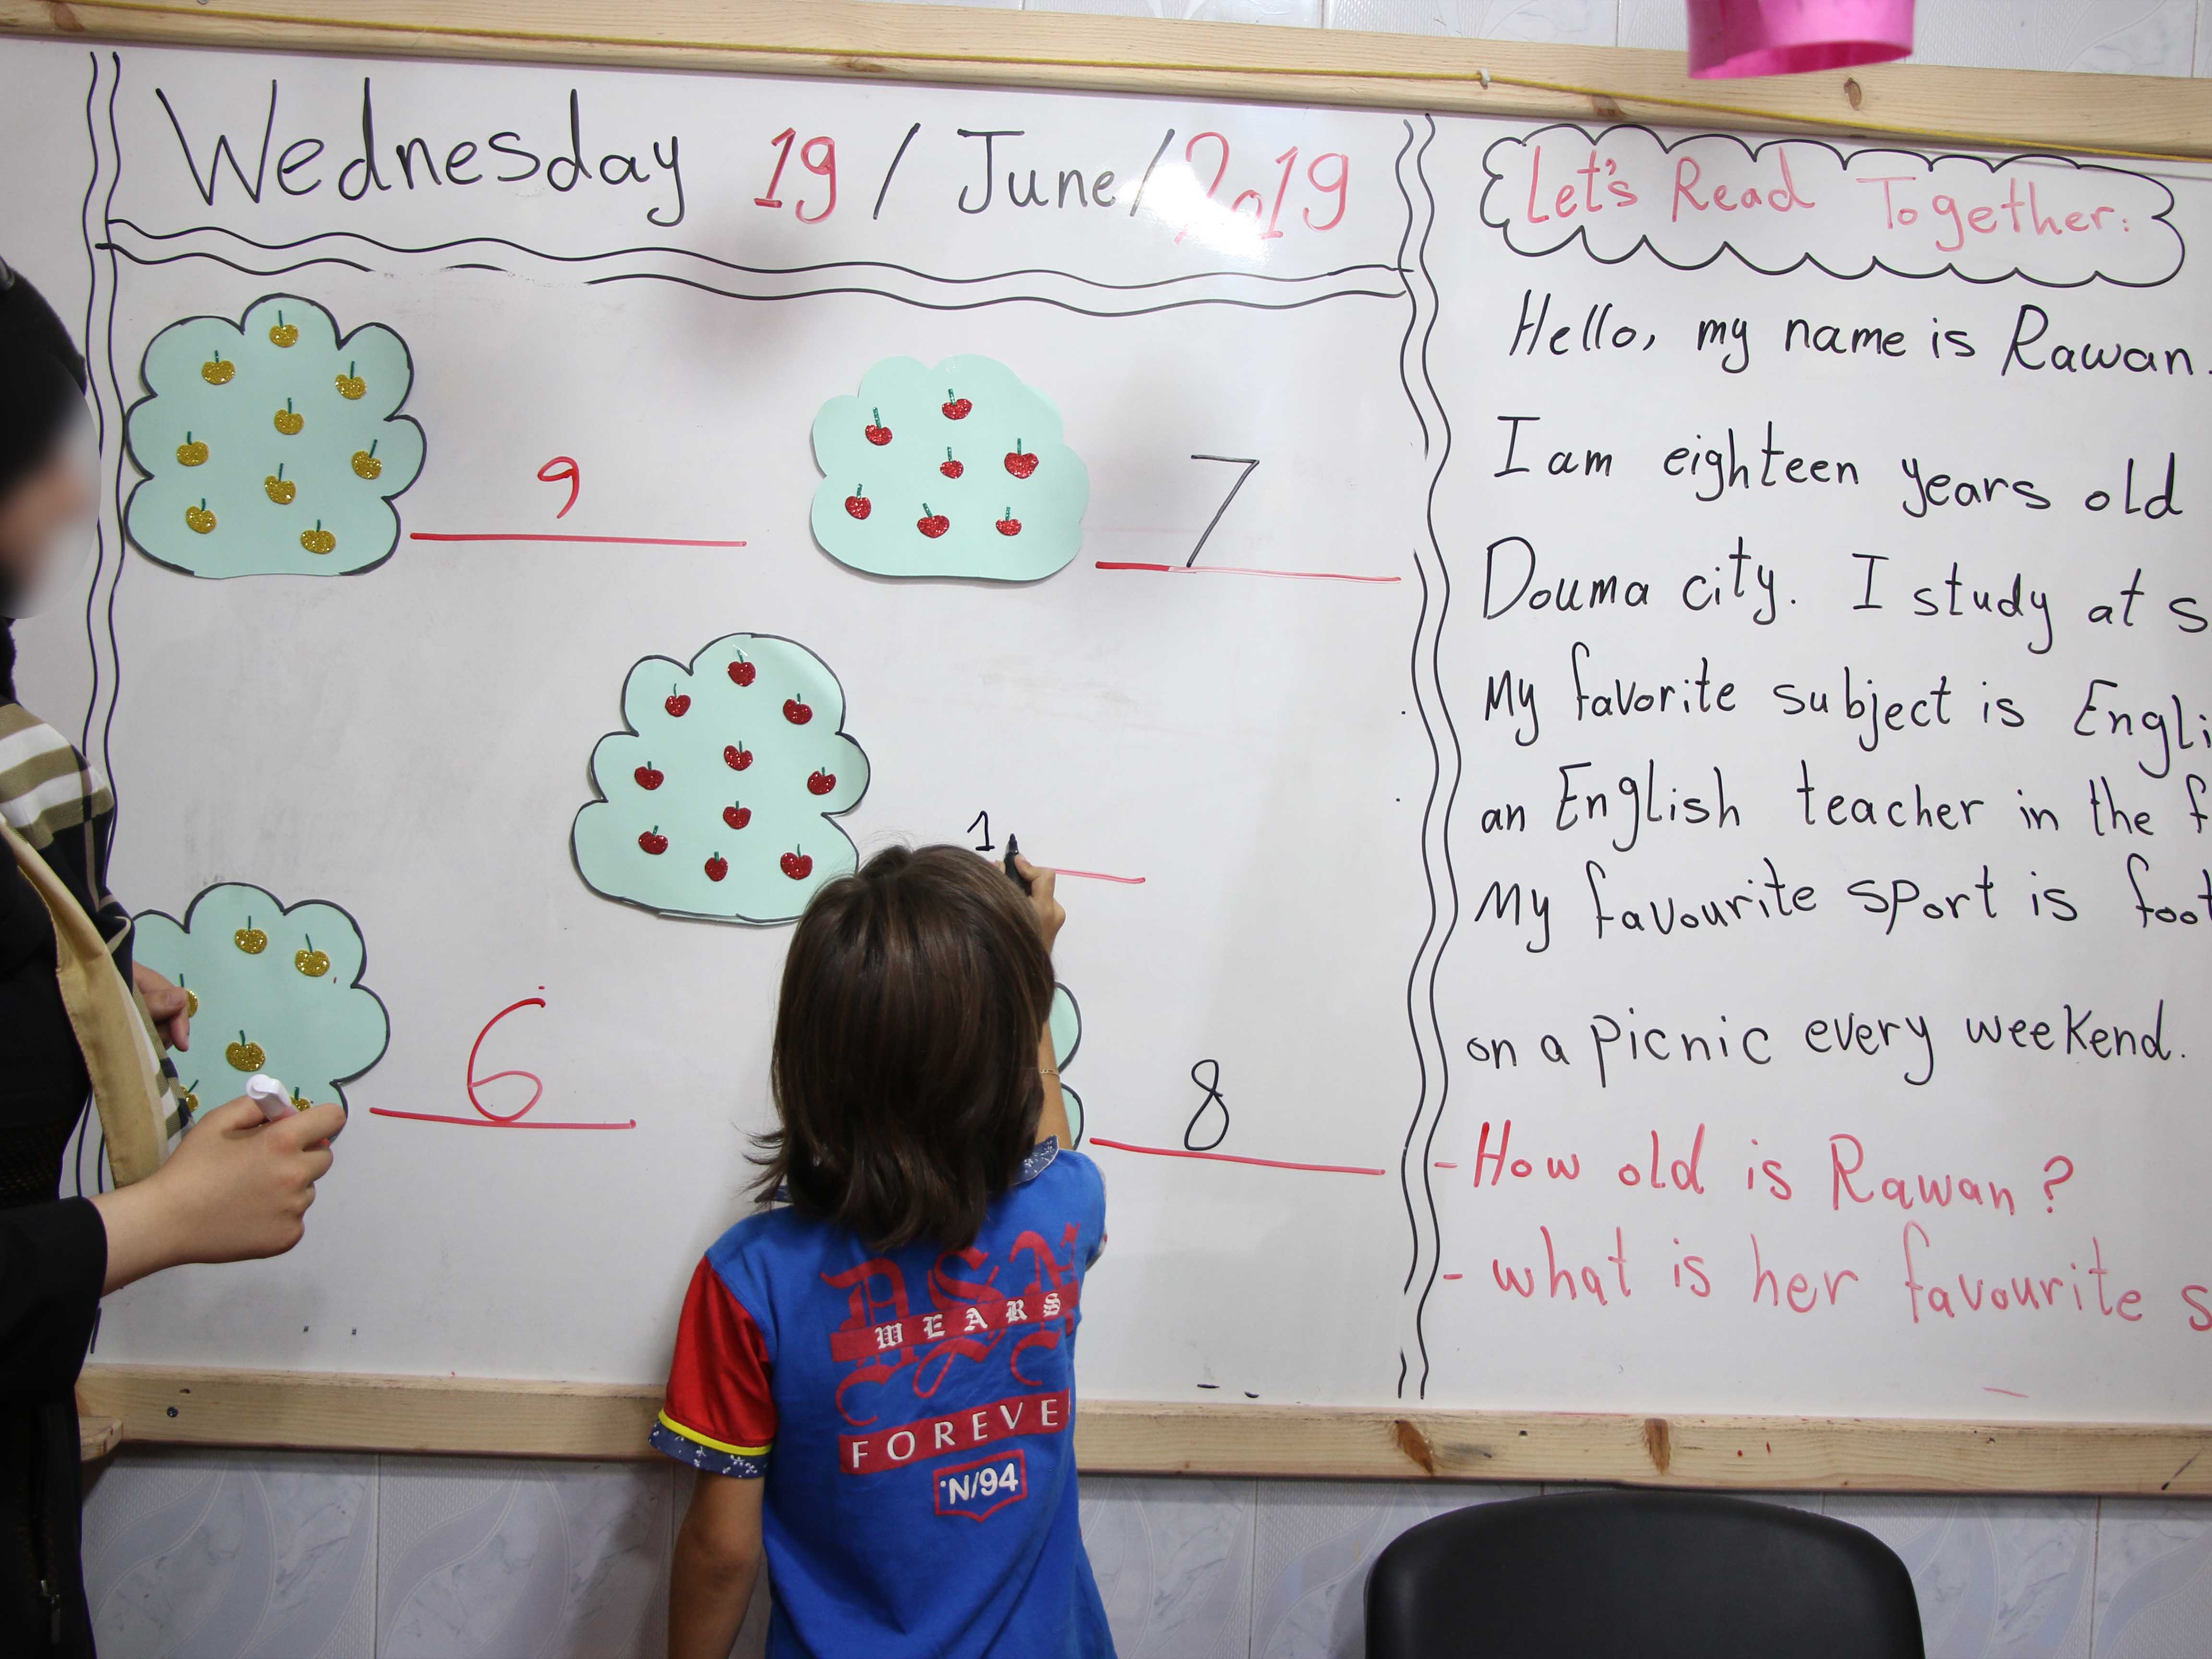 Wednesday 19 / June / 2019
9
7
1
6
8
Let's Read Together:
Hello, my name is Rawan.
I am eighteen years old
Douma city. I study at s
My favorite subject is Engli
an English teacher in the f
My favourite sport is foot
on a picnic every weekend.
- How old is Rawan?
- what is her favourite s
WEARS
FOREVE
'N/94